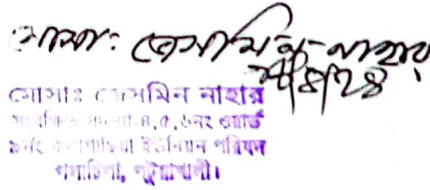 মোসা: জেসমিন নাহার
মোসাঃ জেসমিন নাহার
সংরক্ষিত সদস্যা-৪,৫,৬নং ওয়ার্ড
৯নং কলাগাছিয়া ইউনিয়ন পরিষদ
গলাচিপা, পটুয়াখালী।